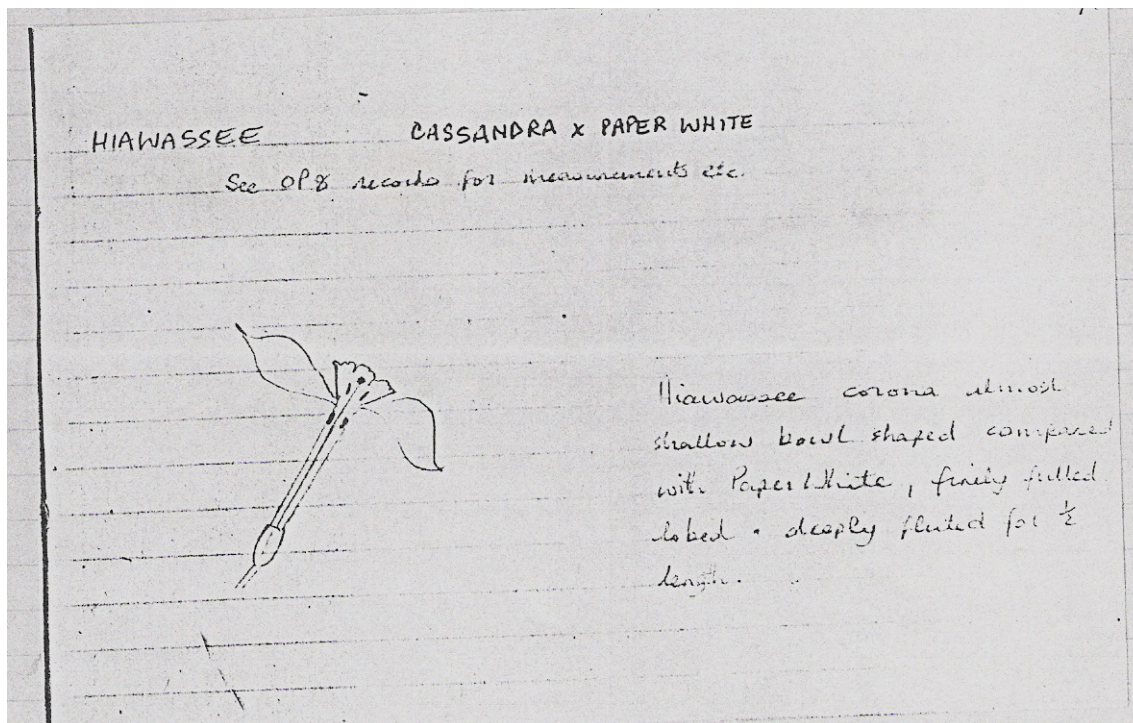 HIAWASSEE CASSANDRA x PAPER WHITE
See OP8 records for measurements etc.
Hiawassee corona almost
shallow bowl shaped compared
with Paper White, finely frilled
lobed. deeply fluted for ½
length.